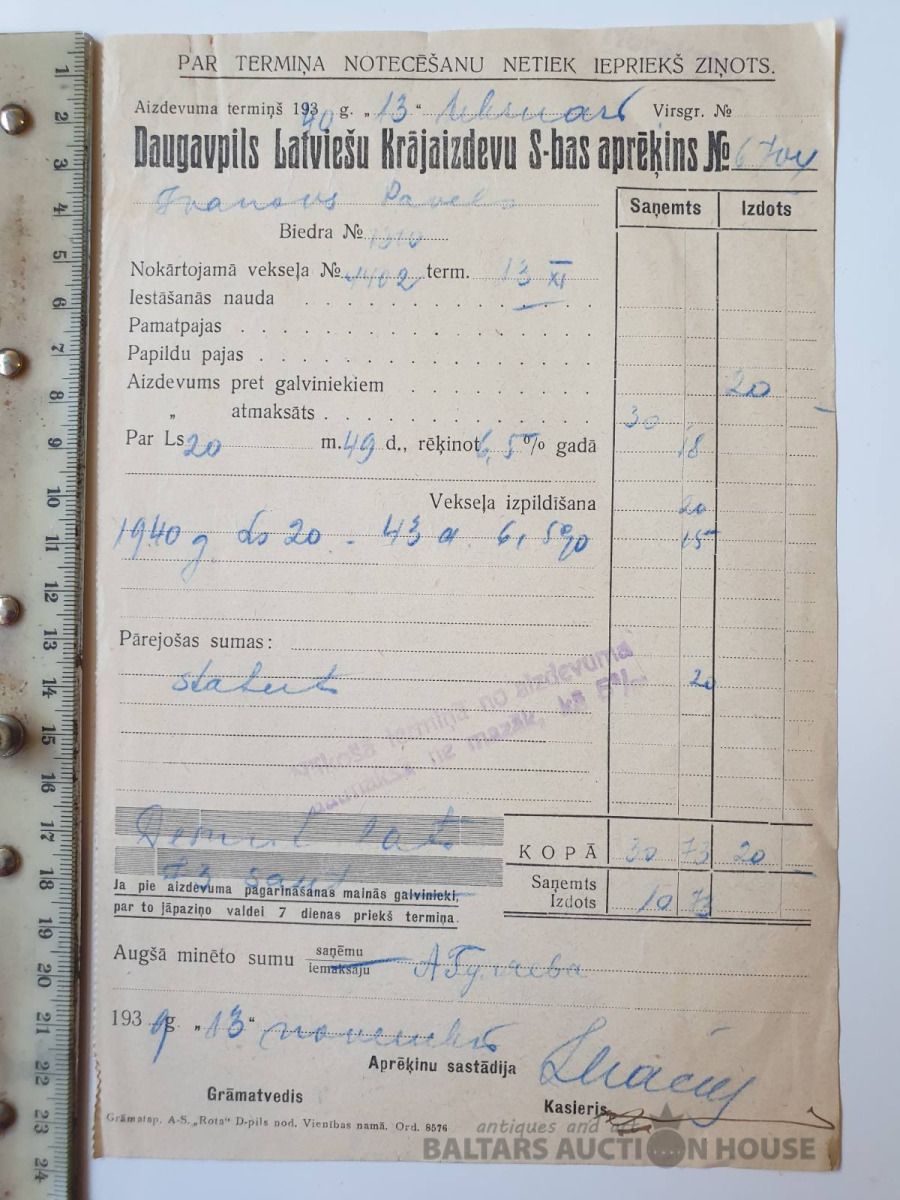 PAR TERMIŅA NOTECĒŠANU NETIEK IEPRIEKŠ ZIŅOTS.
Aizdevuma termiņš 193 40 g. „ 13 “ februarī Virsgr. №
Daugavpils Latviešu Krājaizdevu S-bas aprēķins №
Ivanovs Pavels
Saņemts Izdots
Biedra № 1310
Nokārtojamā vekseļa № 4402 term. 13 XI
Iestāšanās nauda
Pamatpajas
Papildu pajas
Aizdevums pret galviniekiem 20 —
„ atmaksāts 30
Par Ls 20 m. 49 d., rēķinot 6,5 % gadā 18
Vekseļa izpildīšana 20
1940 g. Ls 20 - 43 d. 6,5% 15
Pārejošas sumas:
20
Desmit lati
73 sant
KOPĀ 30 73 20 —
Ja pie aizdevuma pagarināšanas mainās galvinieki,
par to jāpaziņo valdei 7 dienas priekš termiņa.
Saņemts
Izdots 10 73
Augšā minēto sumu saņēmu
iemaksāju
193 9 g. „ 13 “ novembrī
Aprēķinu sastādīja
Grāmatvedis
Kasieris
Grāmatsp. A-S. „Rota“ D-pils nod. Vienības namā. Ord. 8576
antiques and art
BALTARS AUCTION HOUSE
1
2
3
4
5
6
7
8
9
10
11
12
13
14
15
16
17
18
19
20
21
22
23
24